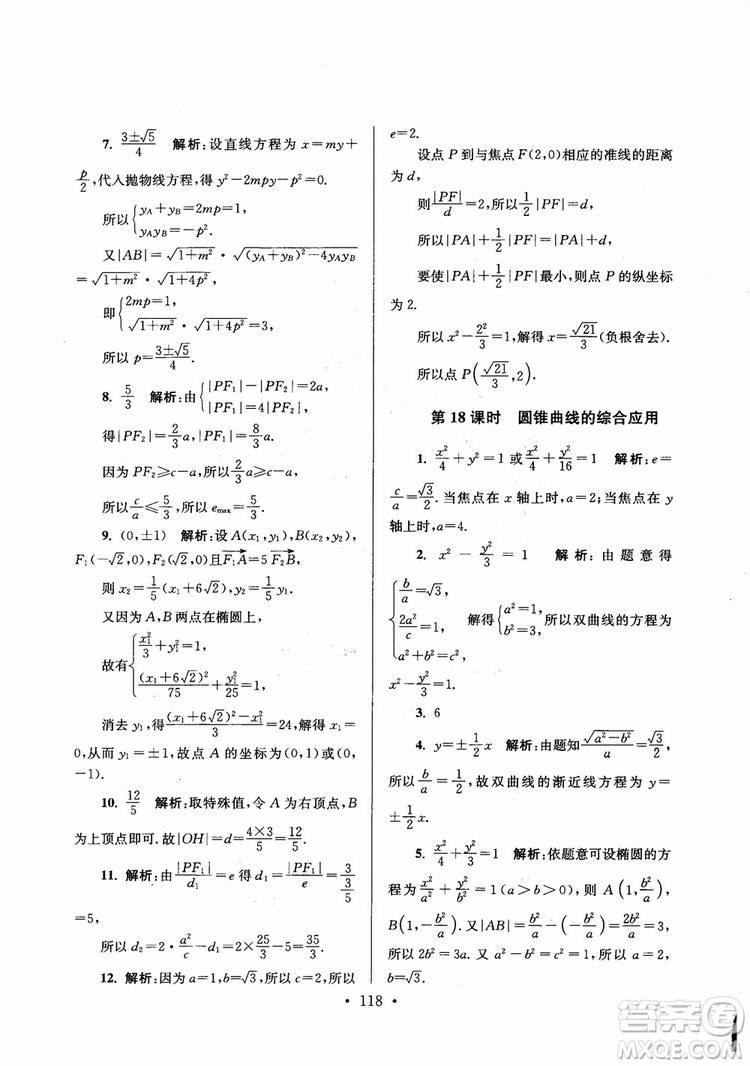 7. (3±√5)/4　解析:设直线方程为 x=my+
p/2,代入抛物线方程,得 y²−2mpy−p²=0.
所以{y_A+y_B=2mp=1,
y_Ay_B=−p².
又|AB|=√(1+m²)·√((y_A+y_B)²−4y_Ay_B)
=√(1+m²)·√(1+4p²),
即{2mp=1,
√(1+m²)·√(1+4p²)=3,
所以 p=(3±√5)/4.
8. 5/3　解析:由{|PF₁|−|PF₂|=2a,
|PF₁|=4|PF₂|,
得|PF₂|=2/3 a,|PF₁|=8/3 a.
因为 PF₂≥c−a,所以 2/3 a≥c−a,
所以 c/a≤5/3,所以 e_max=5/3.
9. (0,±1)　解析:设 A(x₁,y₁),B(x₂,y₂),
F₁(−√2,0),F₂(√2,0)且F₁A=5 F₂B,
则 x₂=1/5(x₁+6√2),y₂=1/5 y₁.
又因为 A,B 两点在椭圆上,
故有{x₁²/3+y₁²=1,
(x₁+6√2)²/75+y₁²/25=1,
消去 y₁,得((x₁+6√2)²−x₁²)/3=24,解得 x₁=
0,从而 y₁=±1,故点 A 的坐标为(0,1)或(0,
−1).
10. 12/5　解析:取特殊值,令 A 为右顶点,B
为上顶点即可.故|OH|=d=(4×3)/5=12/5.
11. 解析:由|PF₁|/d₁=e 得 d₁=|PF₁|/e=3/(3/5)
=5,
所以 d₂=2·a²/c−d₁=2×25/3−5=35/3.
12. 解析:因为 a=1,b=√3,所以 c=2,所以
e=2.
设点 P 到与焦点 F(2,0)相应的准线的距离
为 d,
则|PF|/d=2,所以 1/2|PF|=d,
所以|PA|+1/2|PF|=|PA|+d,
要使|PA|+1/2|PF|最小,则点 P 的纵坐标
为 2.
所以 x²−2²/3=1,解得 x=√21/3(负根舍去).
所以点 P(√21/3,2).
第 18 课时　圆锥曲线的综合应用
1. x²/4+y²=1 或 x²/4+y²/16=1　解析:e=
c/a=√3/2.当焦点在 x 轴上时,a=2;当焦点在 y
轴上时,a=4.
2. x²−y²/3=1　解析:由题意得
{b/a=√3,
2a²/c=1,　解得{a²=1,b²=3,所以双曲线的方程为
a²+b²=c²,
x²−y²/3=1.
3. 6
4. y=±1/2 x　解析:由题知 √(a²−b²)/a=√3/2,
所以 b/a=1/2,故双曲线的渐近线方程为 y=
±1/2 x.
5. x²/4+y²/3=1　解析:依题意可设椭圆的方
程为 x²/a²+y²/b²=1(a>b>0),则 A(1,b²/a),
B(1,−b²/a).又|AB|=b²/a−(−b²/a)=2b²/a=3,
所以 2b²=3a.又 a²−b²=c²=1,所以 a=2,
b=√3.
• 118 •
答案圈
MXQE.COM